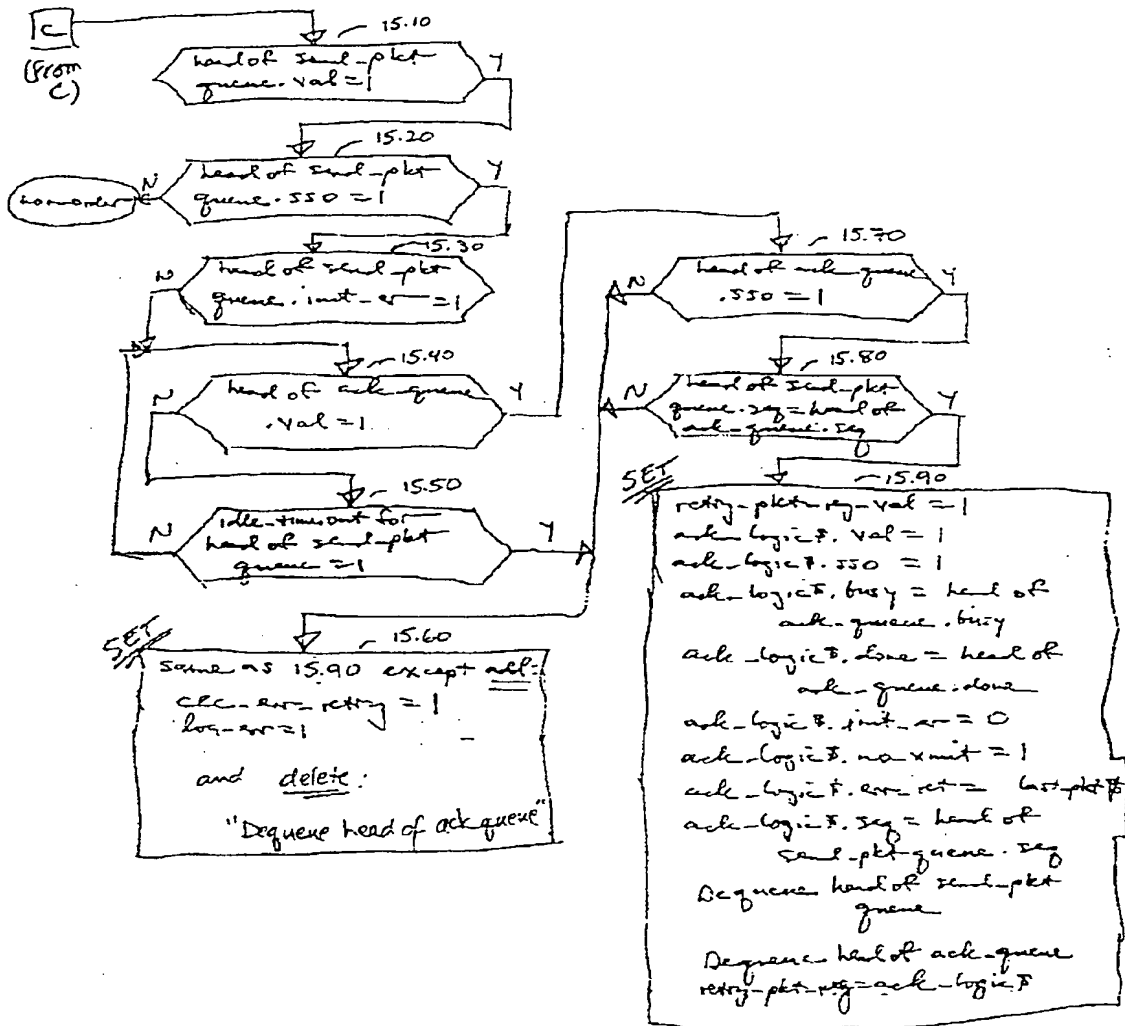 C
(From
C)
15.10
head of send-pkt
queue.val=1
Y
15.20
head of send-pkt
queue.sso=1
N
Y
15.30
head of send-pkt
queue.init-er=1
N
15.40
head of ack-queue
.val=1
N
Y
15.50
idle-timeout for
head of send-pkt
queue=1
N
Y
SET
15.60
same as 15.90 except add:
err-retry=1
log-err=1
and delete:
"Dequeue head of ack queue"
15.70
head of ack-queue
.sso=1
N
Y
15.80
head of send-pkt
queue.seq=head of
ack-queue.seq
N
Y
SET
15.90
retry-pkt-reg-val=1
ack-logic$.val=1
ack-logic$.sso=1
ack-logic$.busy=head of
ack-queue.busy
ack-logic$.done=head of
ack-queue.done
ack-logic$.init-er=0
ack-logic$.no xmit=1
ack-logic$.err-ret= last-pkt$
ack-logic$.seq=head of
send-pkt-queue.seq
Dequeue head of send-pkt
queue
Dequeue head of ack-queue
retry-pkt-reg=ack-logic$